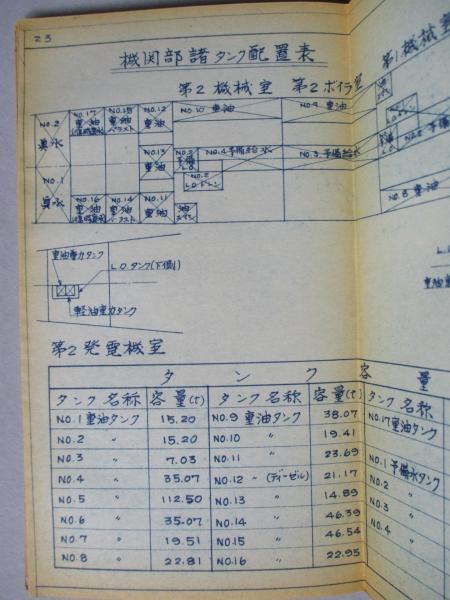 23
機関部諸タンク配置表
第2 機械室 第2 ボイラ室
第1 機械室
NO.2
真水
NO.17
重油
NO.15
重油
バラスト
NO.12
重油
NO.10 重油
NO.9 重油
NO.13
重油
NO.2
予備
L.O.
NO.4 予備給水
NO.3 予備給水
NO.2
L.O.ドレン
NO.1
真水
NO.16
重油
NO.14
重油
バラスト
NO.11
重油
NO.8 重油
重油重力タンク
L.O.タンク(下側)
軽油重力タンク
第2 発電機室
タンク容量
タンク名称 容量(t) タンク名称 容量(t) タンク名称
NO.1 重油タンク 15.20 NO.9 重油タンク 38.07 NO.17 重油タンク
NO.2 〃 15.20 NO.10 〃 19.41
NO.3 〃 7.03 NO.11 〃 23.69 NO.1 予備水タンク
NO.4 〃 35.07 NO.12 〃 (ディーゼル) 21.17 NO.2 〃
NO.5 〃 112.50 NO.13 〃 14.89 NO.3 〃
NO.6 〃 35.07 NO.14 〃 46.39 NO.4 〃
NO.7 〃 19.51 NO.15 〃 46.54
NO.8 〃 22.81 NO.16 〃 22.95